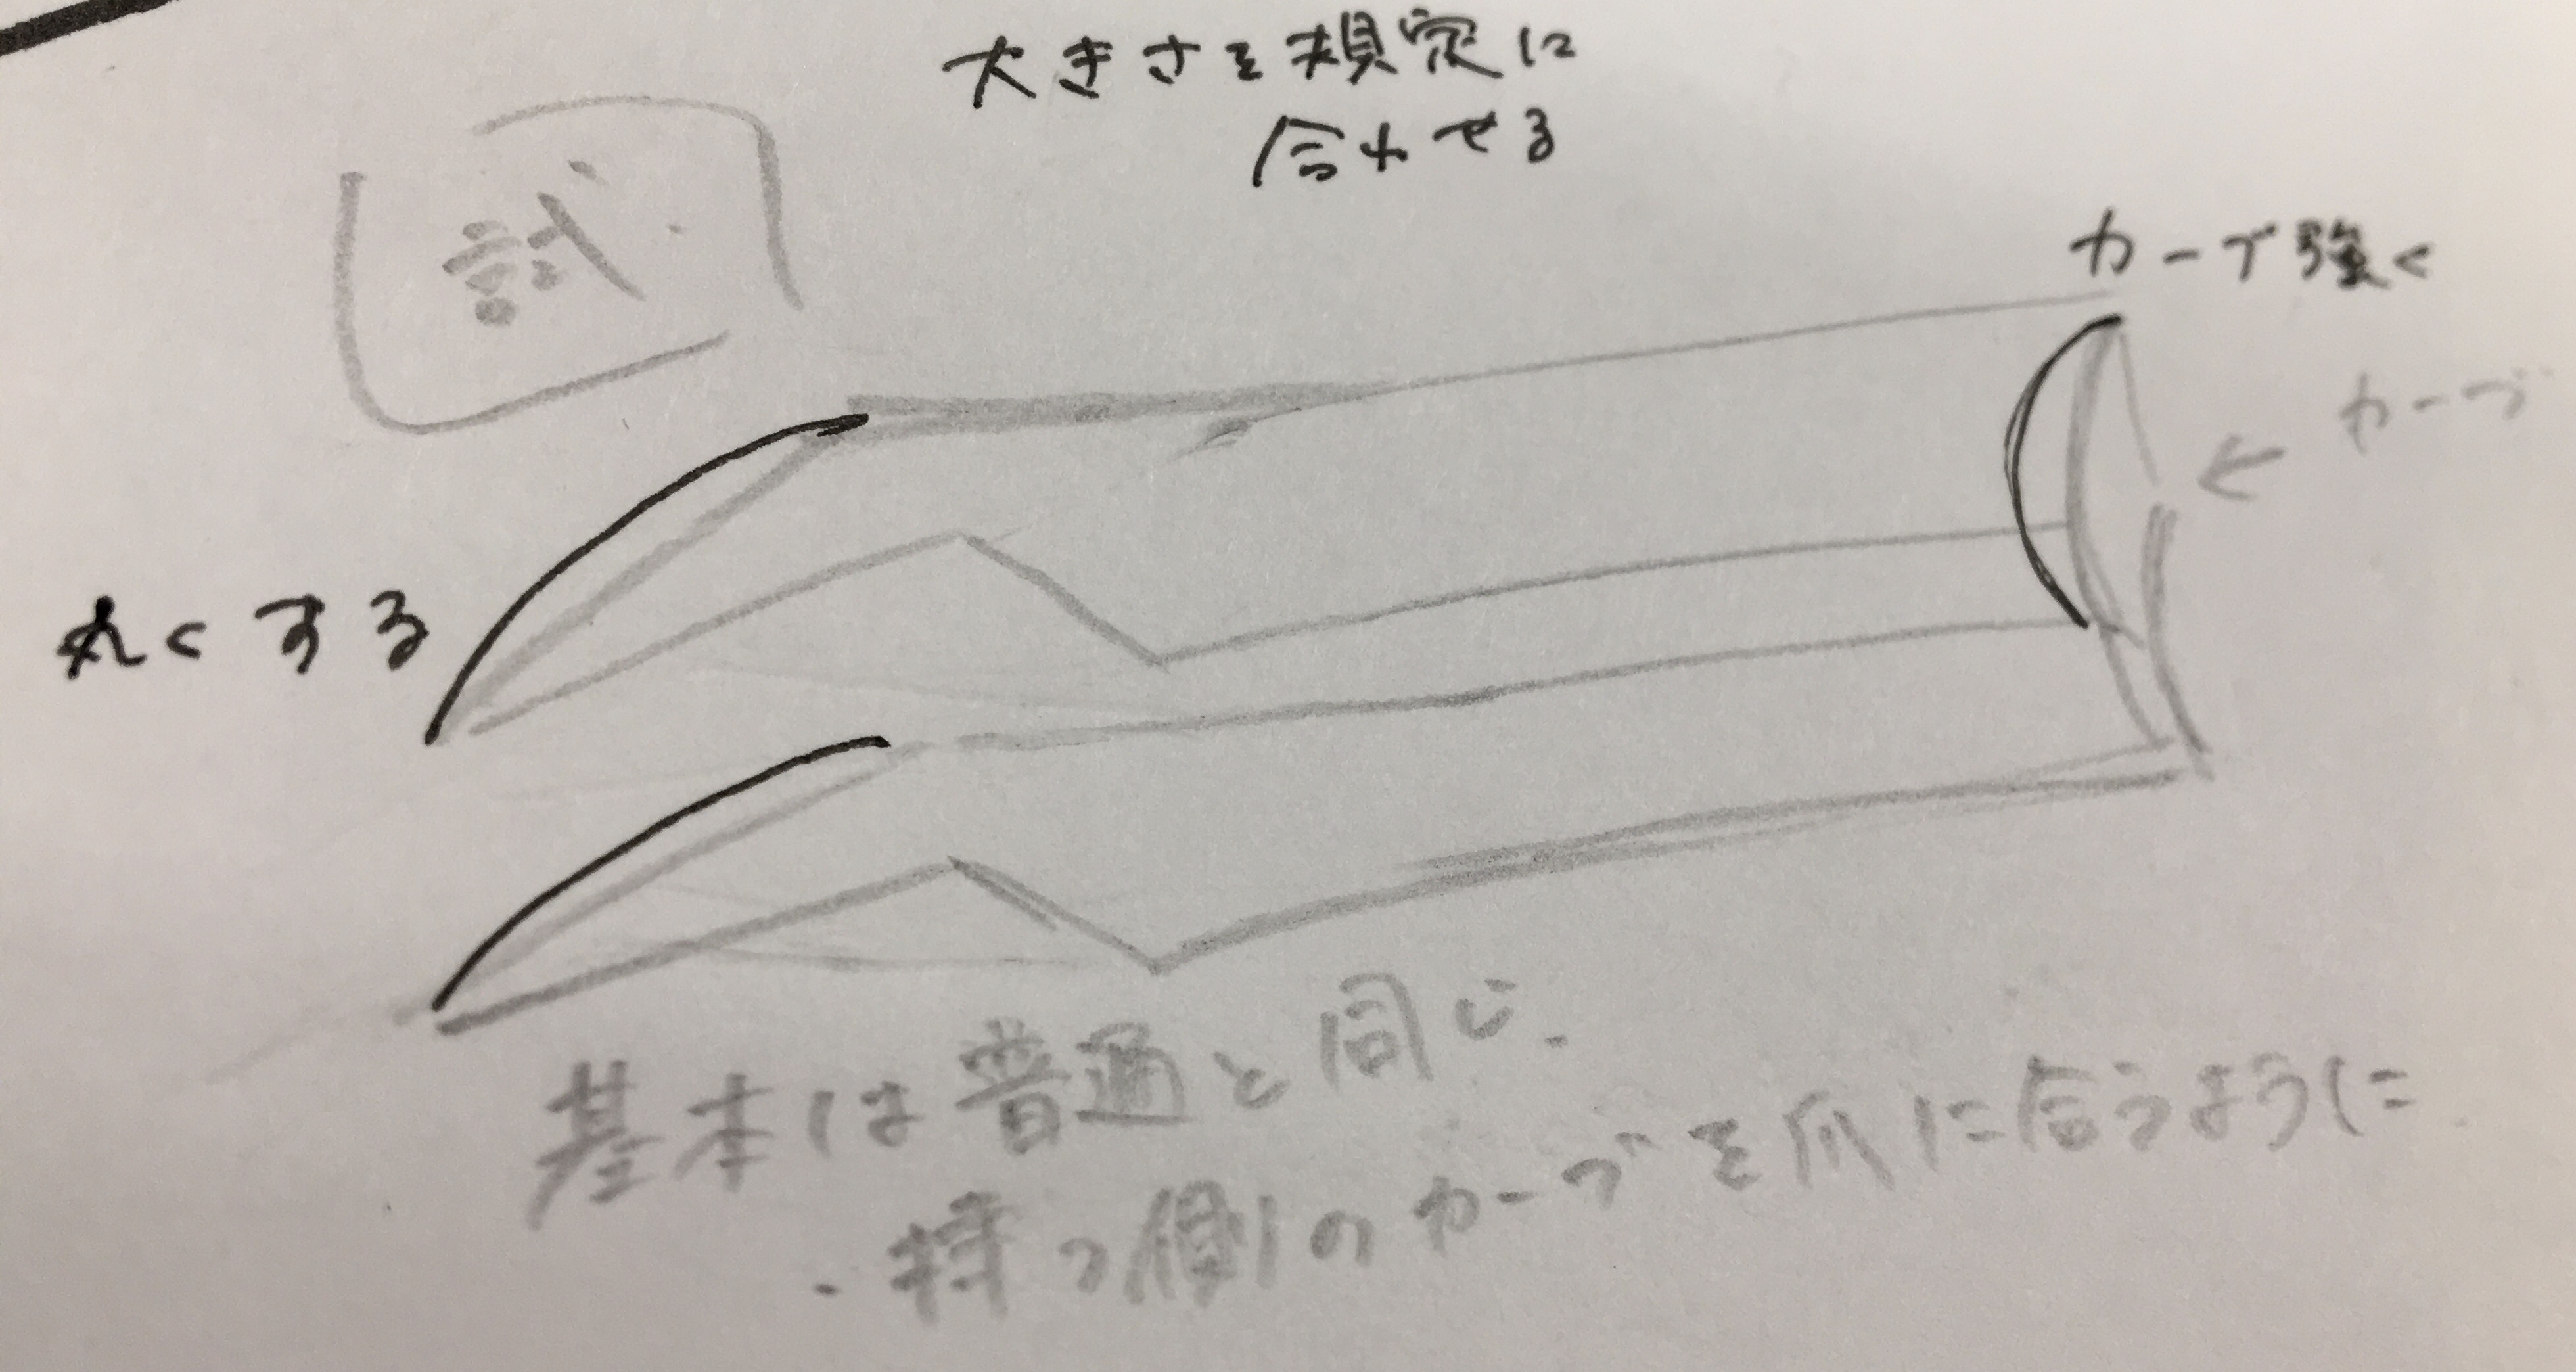 大きさを規定に
合わせる
試
カーブ強く
カーブ
丸くする
基本は普通と同じ.
・持つ側のカーブを爪に合うように